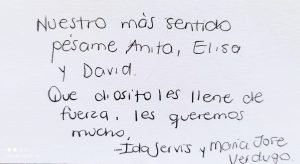 Nuestro más sentido
pésame Anita, Elisa
y David.
Que diosito les llene de
fuerza, les queremos
mucho.
-Ida Jervis y María Jose
Verdugo